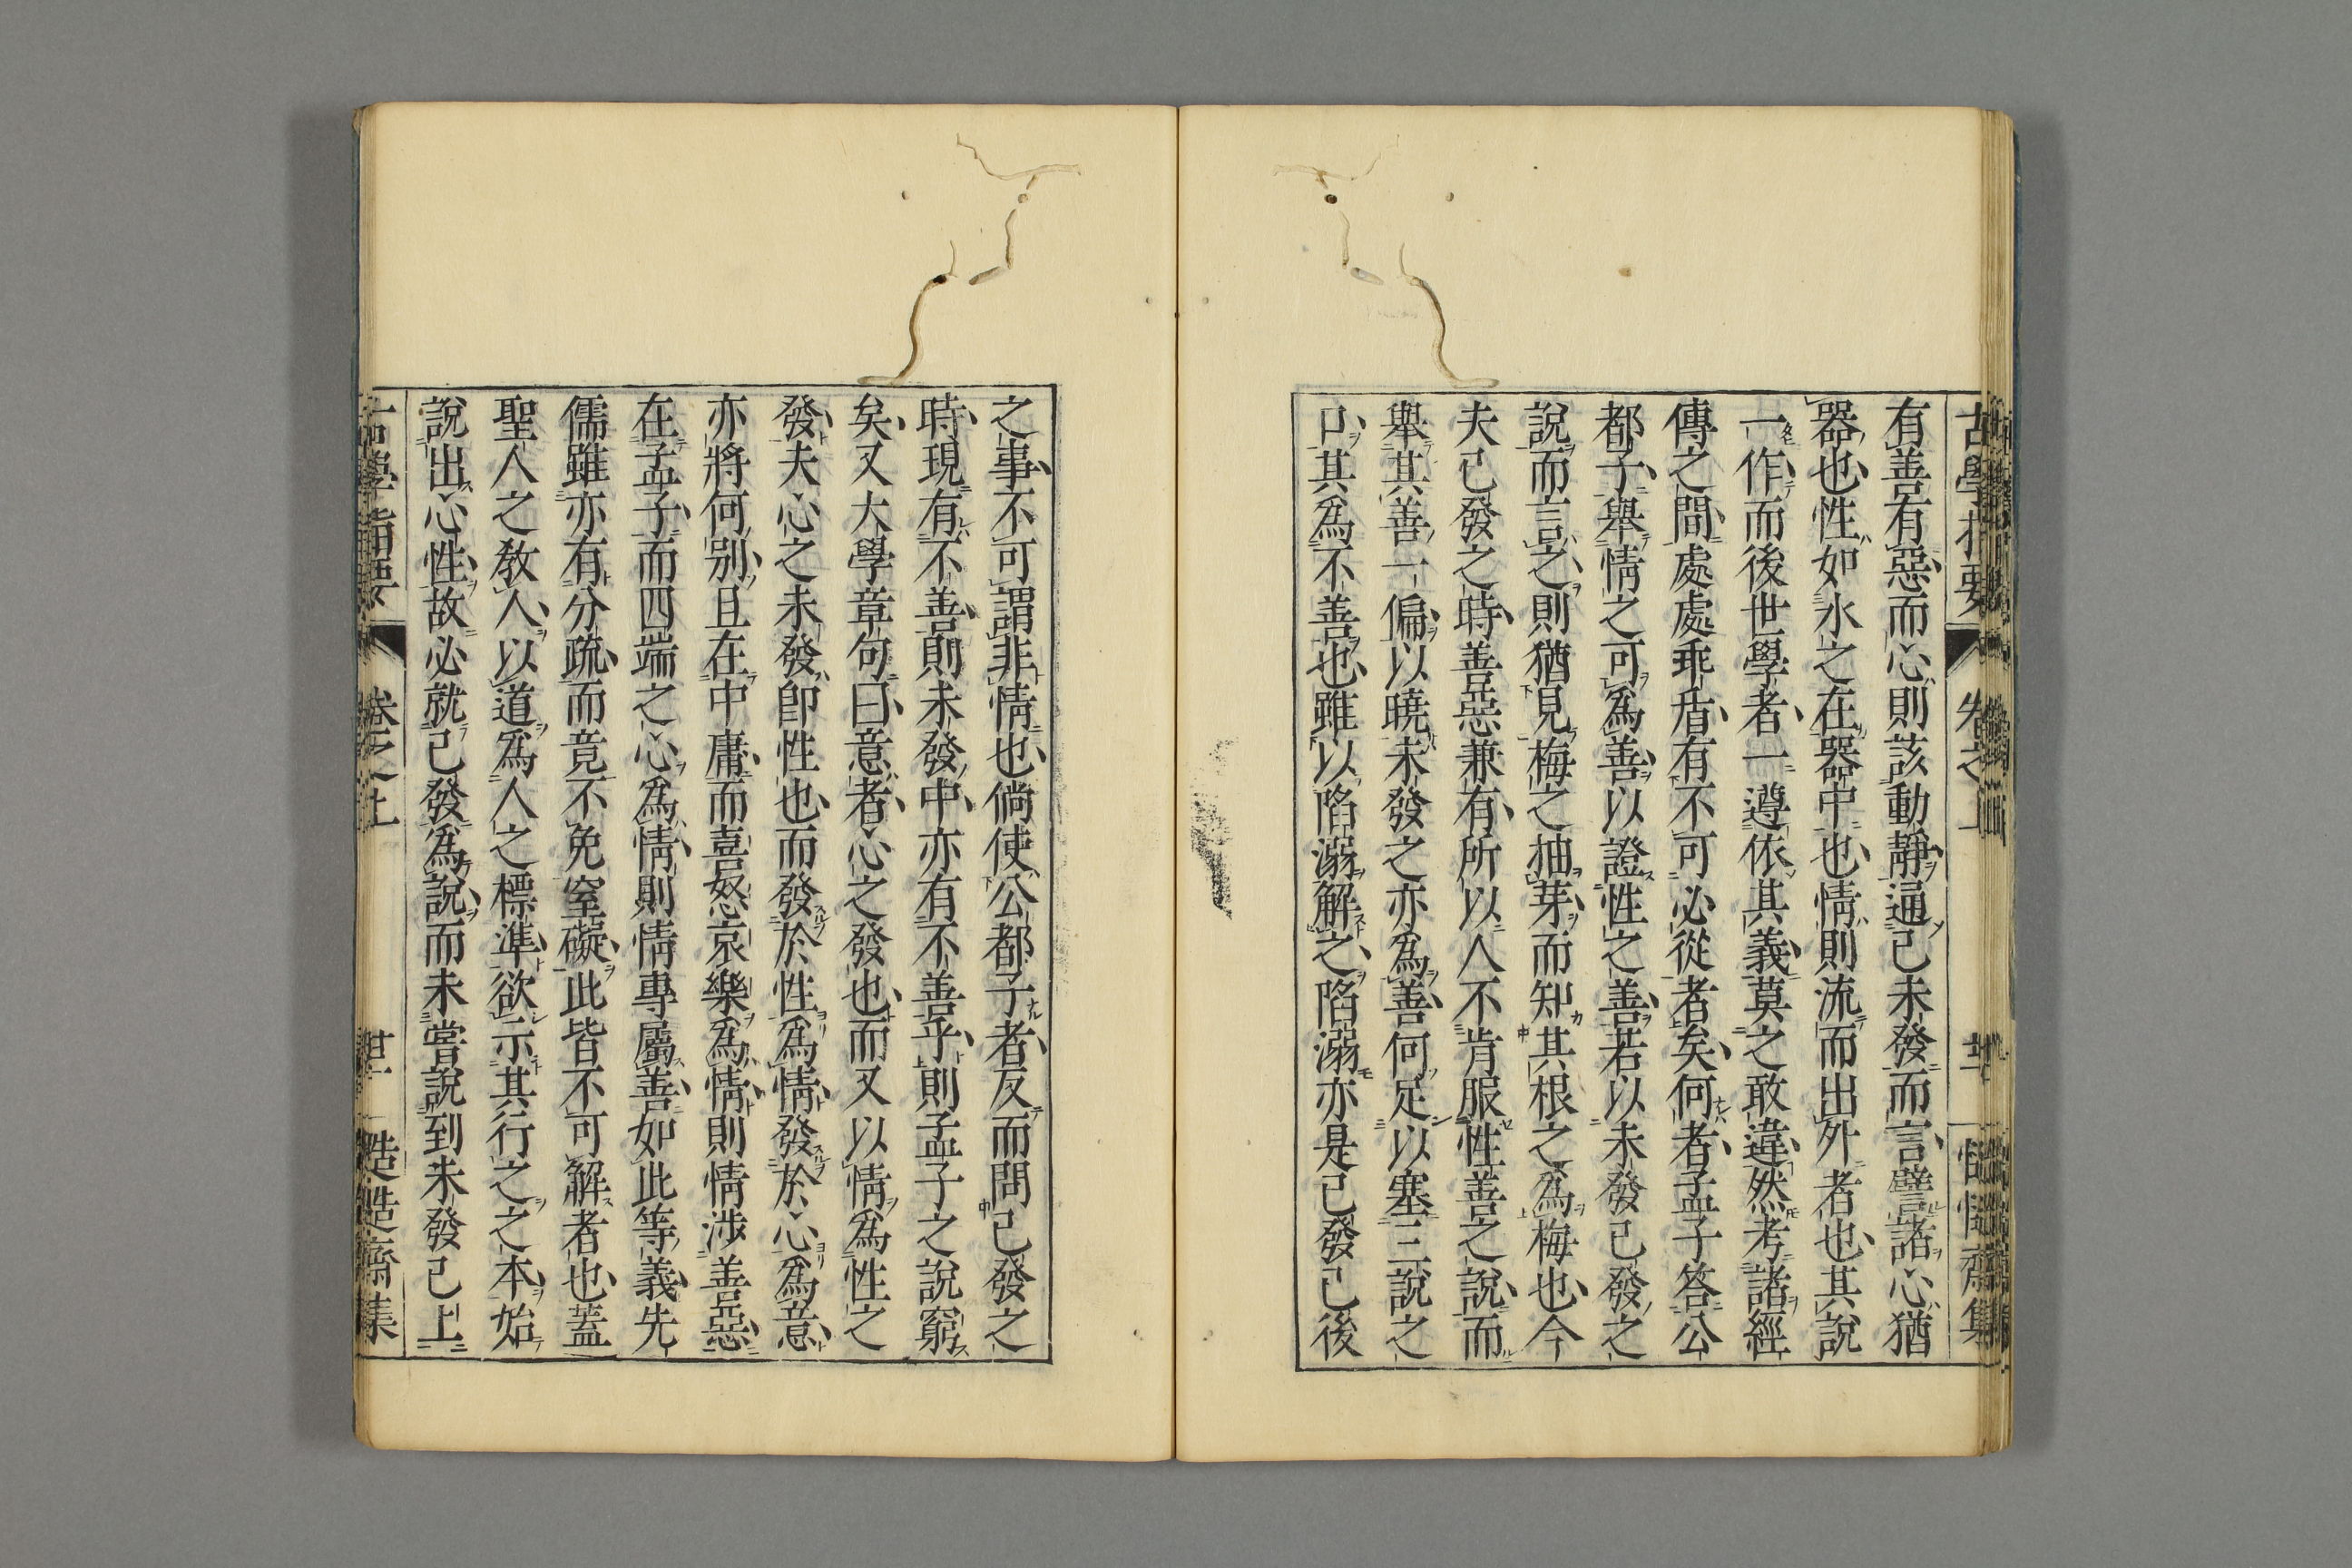 古學指要 卷之上
有善有惡而心則該動靜通已未發而言譬諸心猶
器也性如水之在器中也情則流而出外者也其說
一作而後世學者一遵依其義莫之敢違然考諸經
傳之間處處乖盾有不可必從者矣何者孟子答公
都子舉情之可爲善以證性之善若以未發已發之
說而言之則猶見梅之抽芽而知其根之爲梅也今
夫已發之時善惡兼有所以人不肯服性善之說而
舉其善一偏以曉未發之亦爲善何足以塞三說之
口其爲不善也雖以陷溺解之陷溺亦是已發已後
之事不可謂非情也倘使公都子者反而問已發之
時現有不善則未發中亦有不善乎則孟子之說窮
矣又大學章句曰意者心之發也而又以情爲性之
發夫心之未發卽性也而發於性爲情發於心爲意
亦將何別且在中庸而喜怒哀樂爲情則情涉善惡
在孟子而四端之心爲情則情專屬善如此等義先
儒雖亦有分疏而竟不免窒礙此皆不可解者也蓋
聖人之教人以道爲人之標準欲示其行之之本始
說出心性故必就已發爲說而未嘗說到未發已上
古學指要 卷之上